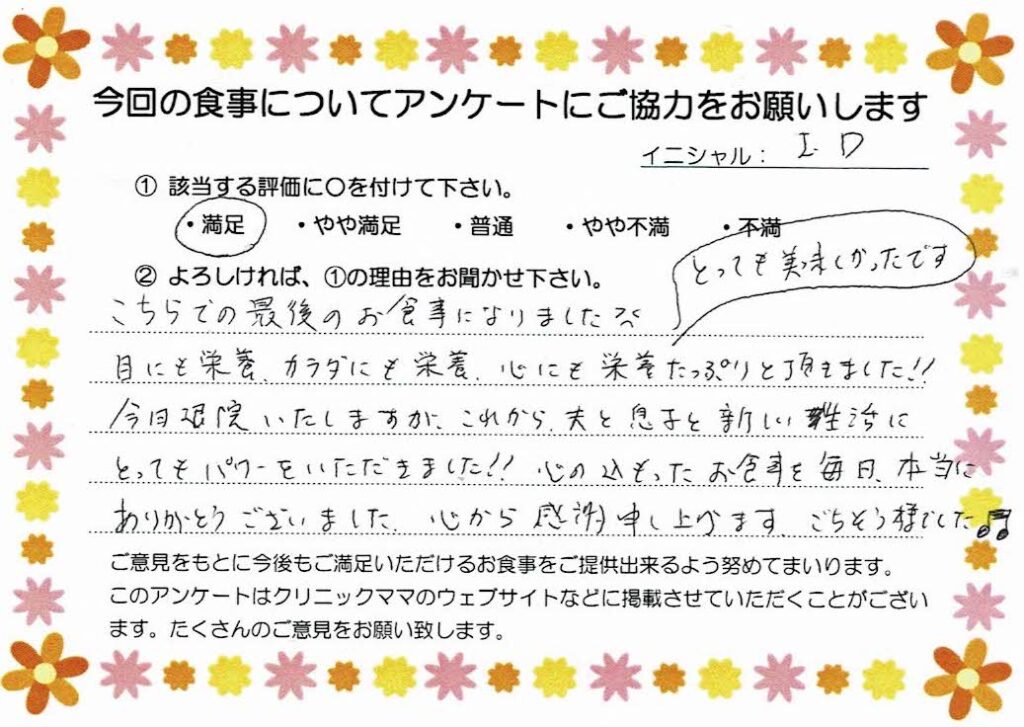 今回の食事についてアンケートにご協力をお願いします
イニシャル： I. D
① 該当する評価に〇を付けて下さい。
・満足 ・やや満足 ・普通 ・やや不満 ・不満
とっても美味しかったです
② よろしければ、①の理由をお聞かせ下さい。
こちらでの最後のお食事になりました
目にも栄養、カラダにも栄養、心にも栄養たっぷりと頂きました!!
今日退院いたしますが、これから、夫と息子と新しい生活に
とってもパワーをいただきました!! 心の込もったお食事を毎日、本当に
ありがとうございました。心から感謝申し上げます。ごちそう様でした♫
ご意見をもとに今後もご満足いただけるお食事をご提供出来るよう努めてまいります。
このアンケートはクリニックママのウェブサイトなどに掲載させていただくことがござい
ます。たくさんのご意見をお願い致します。